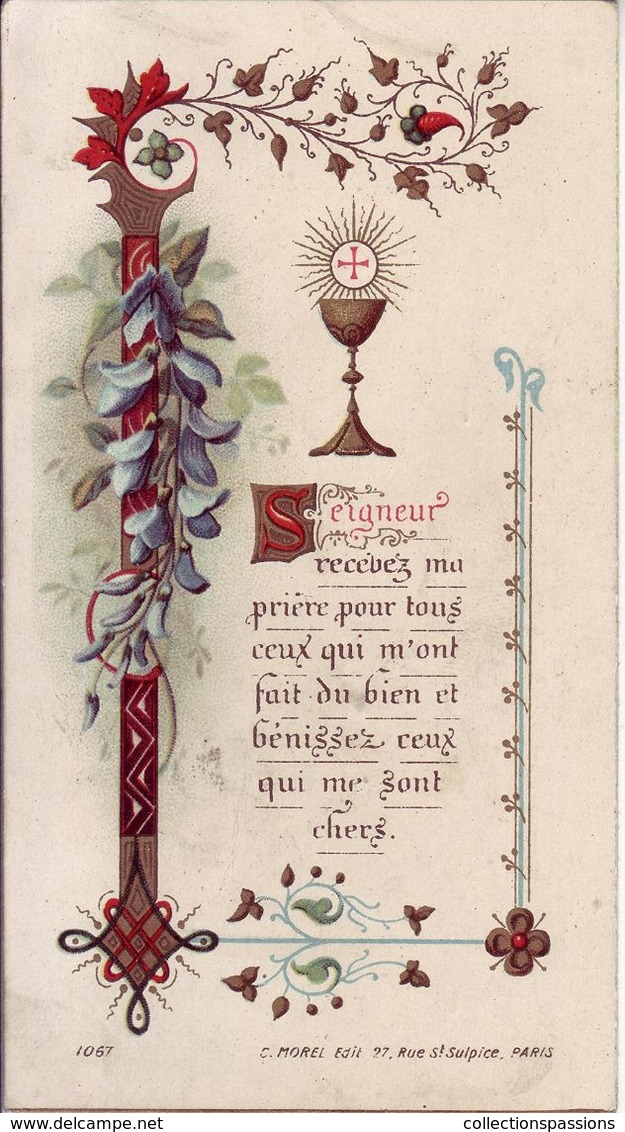 Seigneur
recevez ma
prière pour tous
ceux qui m'ont
fait du bien et
bénissez ceux
qui me sont
chers.
1067
C. MOREL Edit. 27, Rue St Sulpice, PARIS
collectionspassions